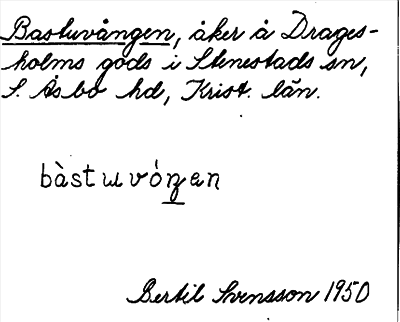 Bastuvången, åker å Drages-
holms gods i Stenestads sn,
S. Åsbo hd, Krist. län.
bàstuvóŋen
Bertil Svensson 1950